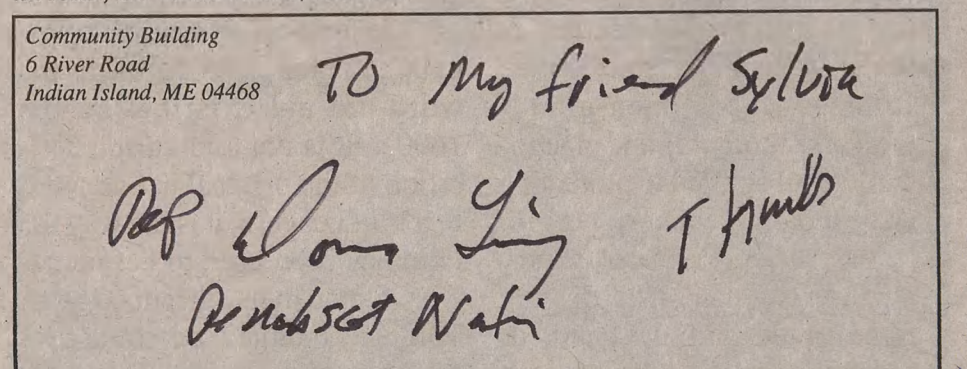 Community Building
6 River Road
Indian Island, ME 04468
To My friend Sylvia
Rep Donna Loring Thanks
Penobscot Nation